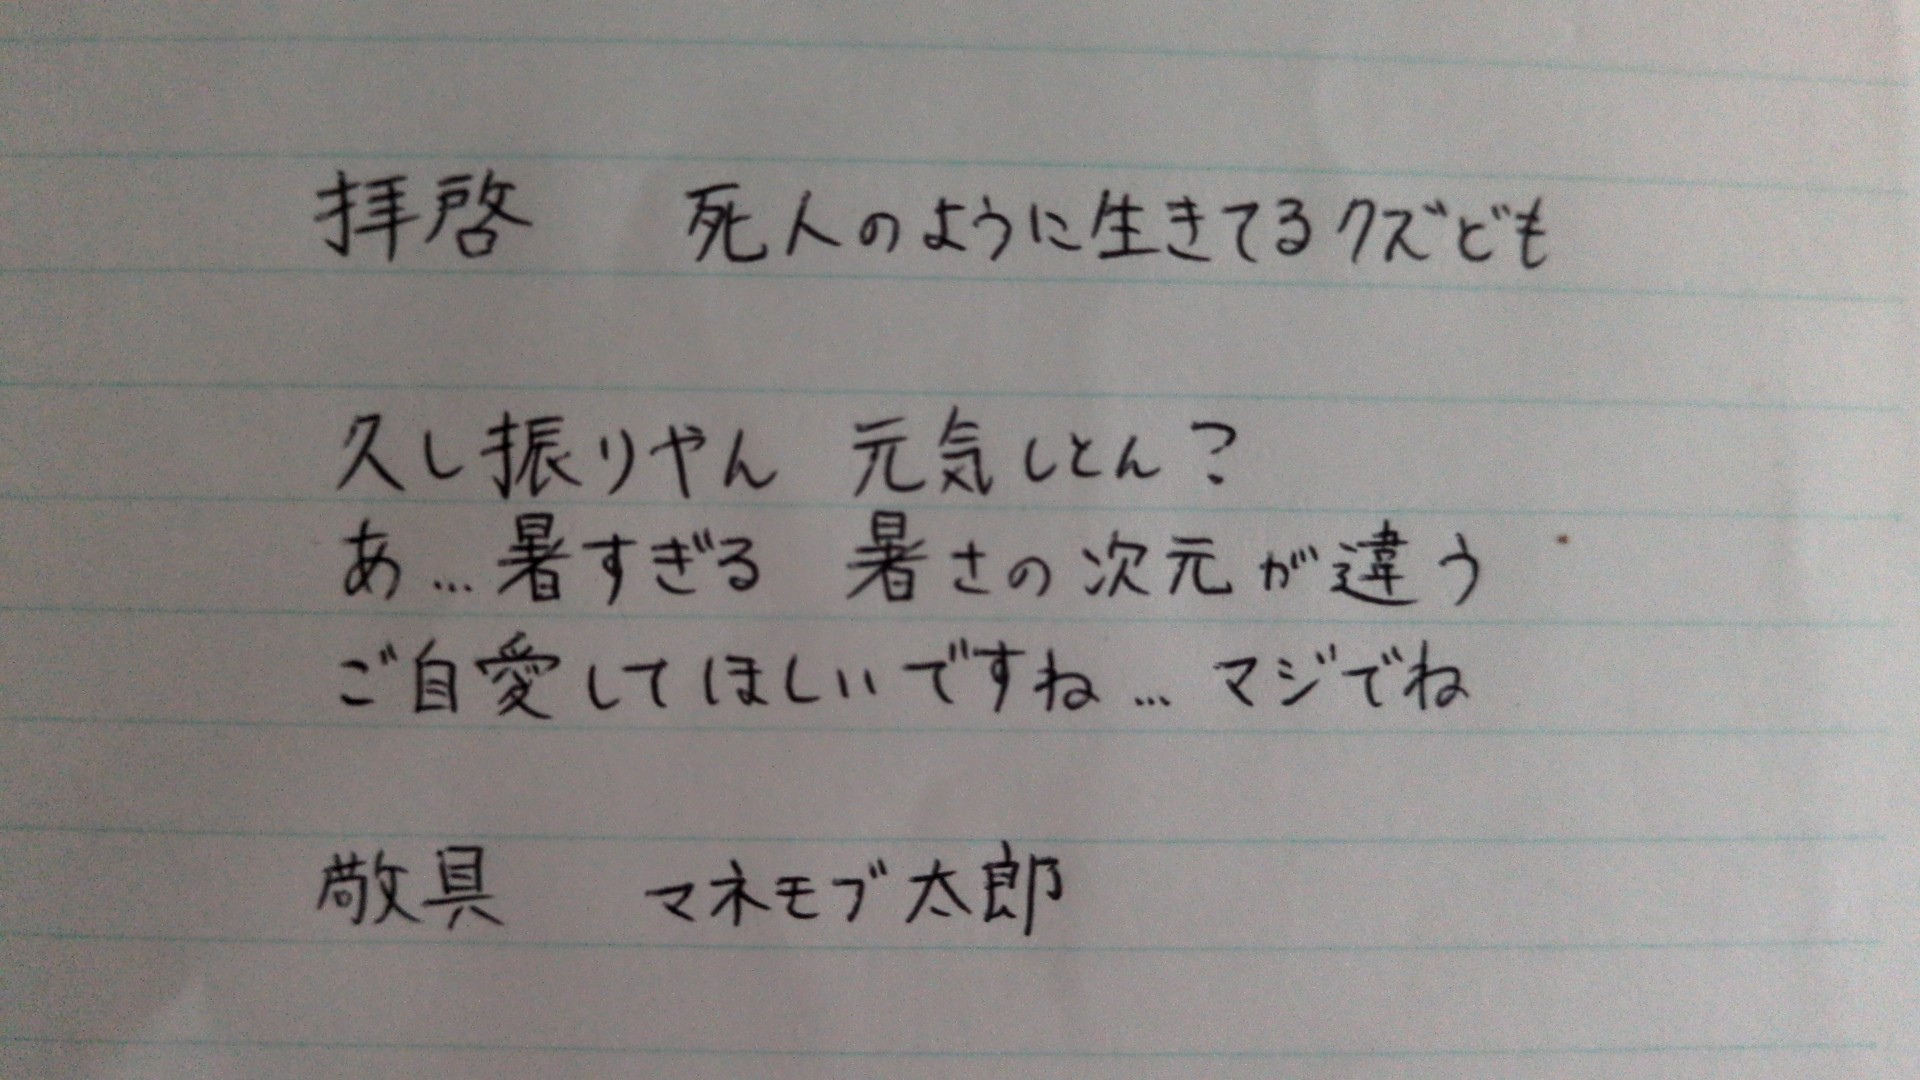 拝啓　死人のように生きてるクズども
久し振りやん　元気しとん？
あ…暑すぎる　暑さの次元が違う
ご自愛してほしいですね…マジでね
敬具　マネモブ太郎